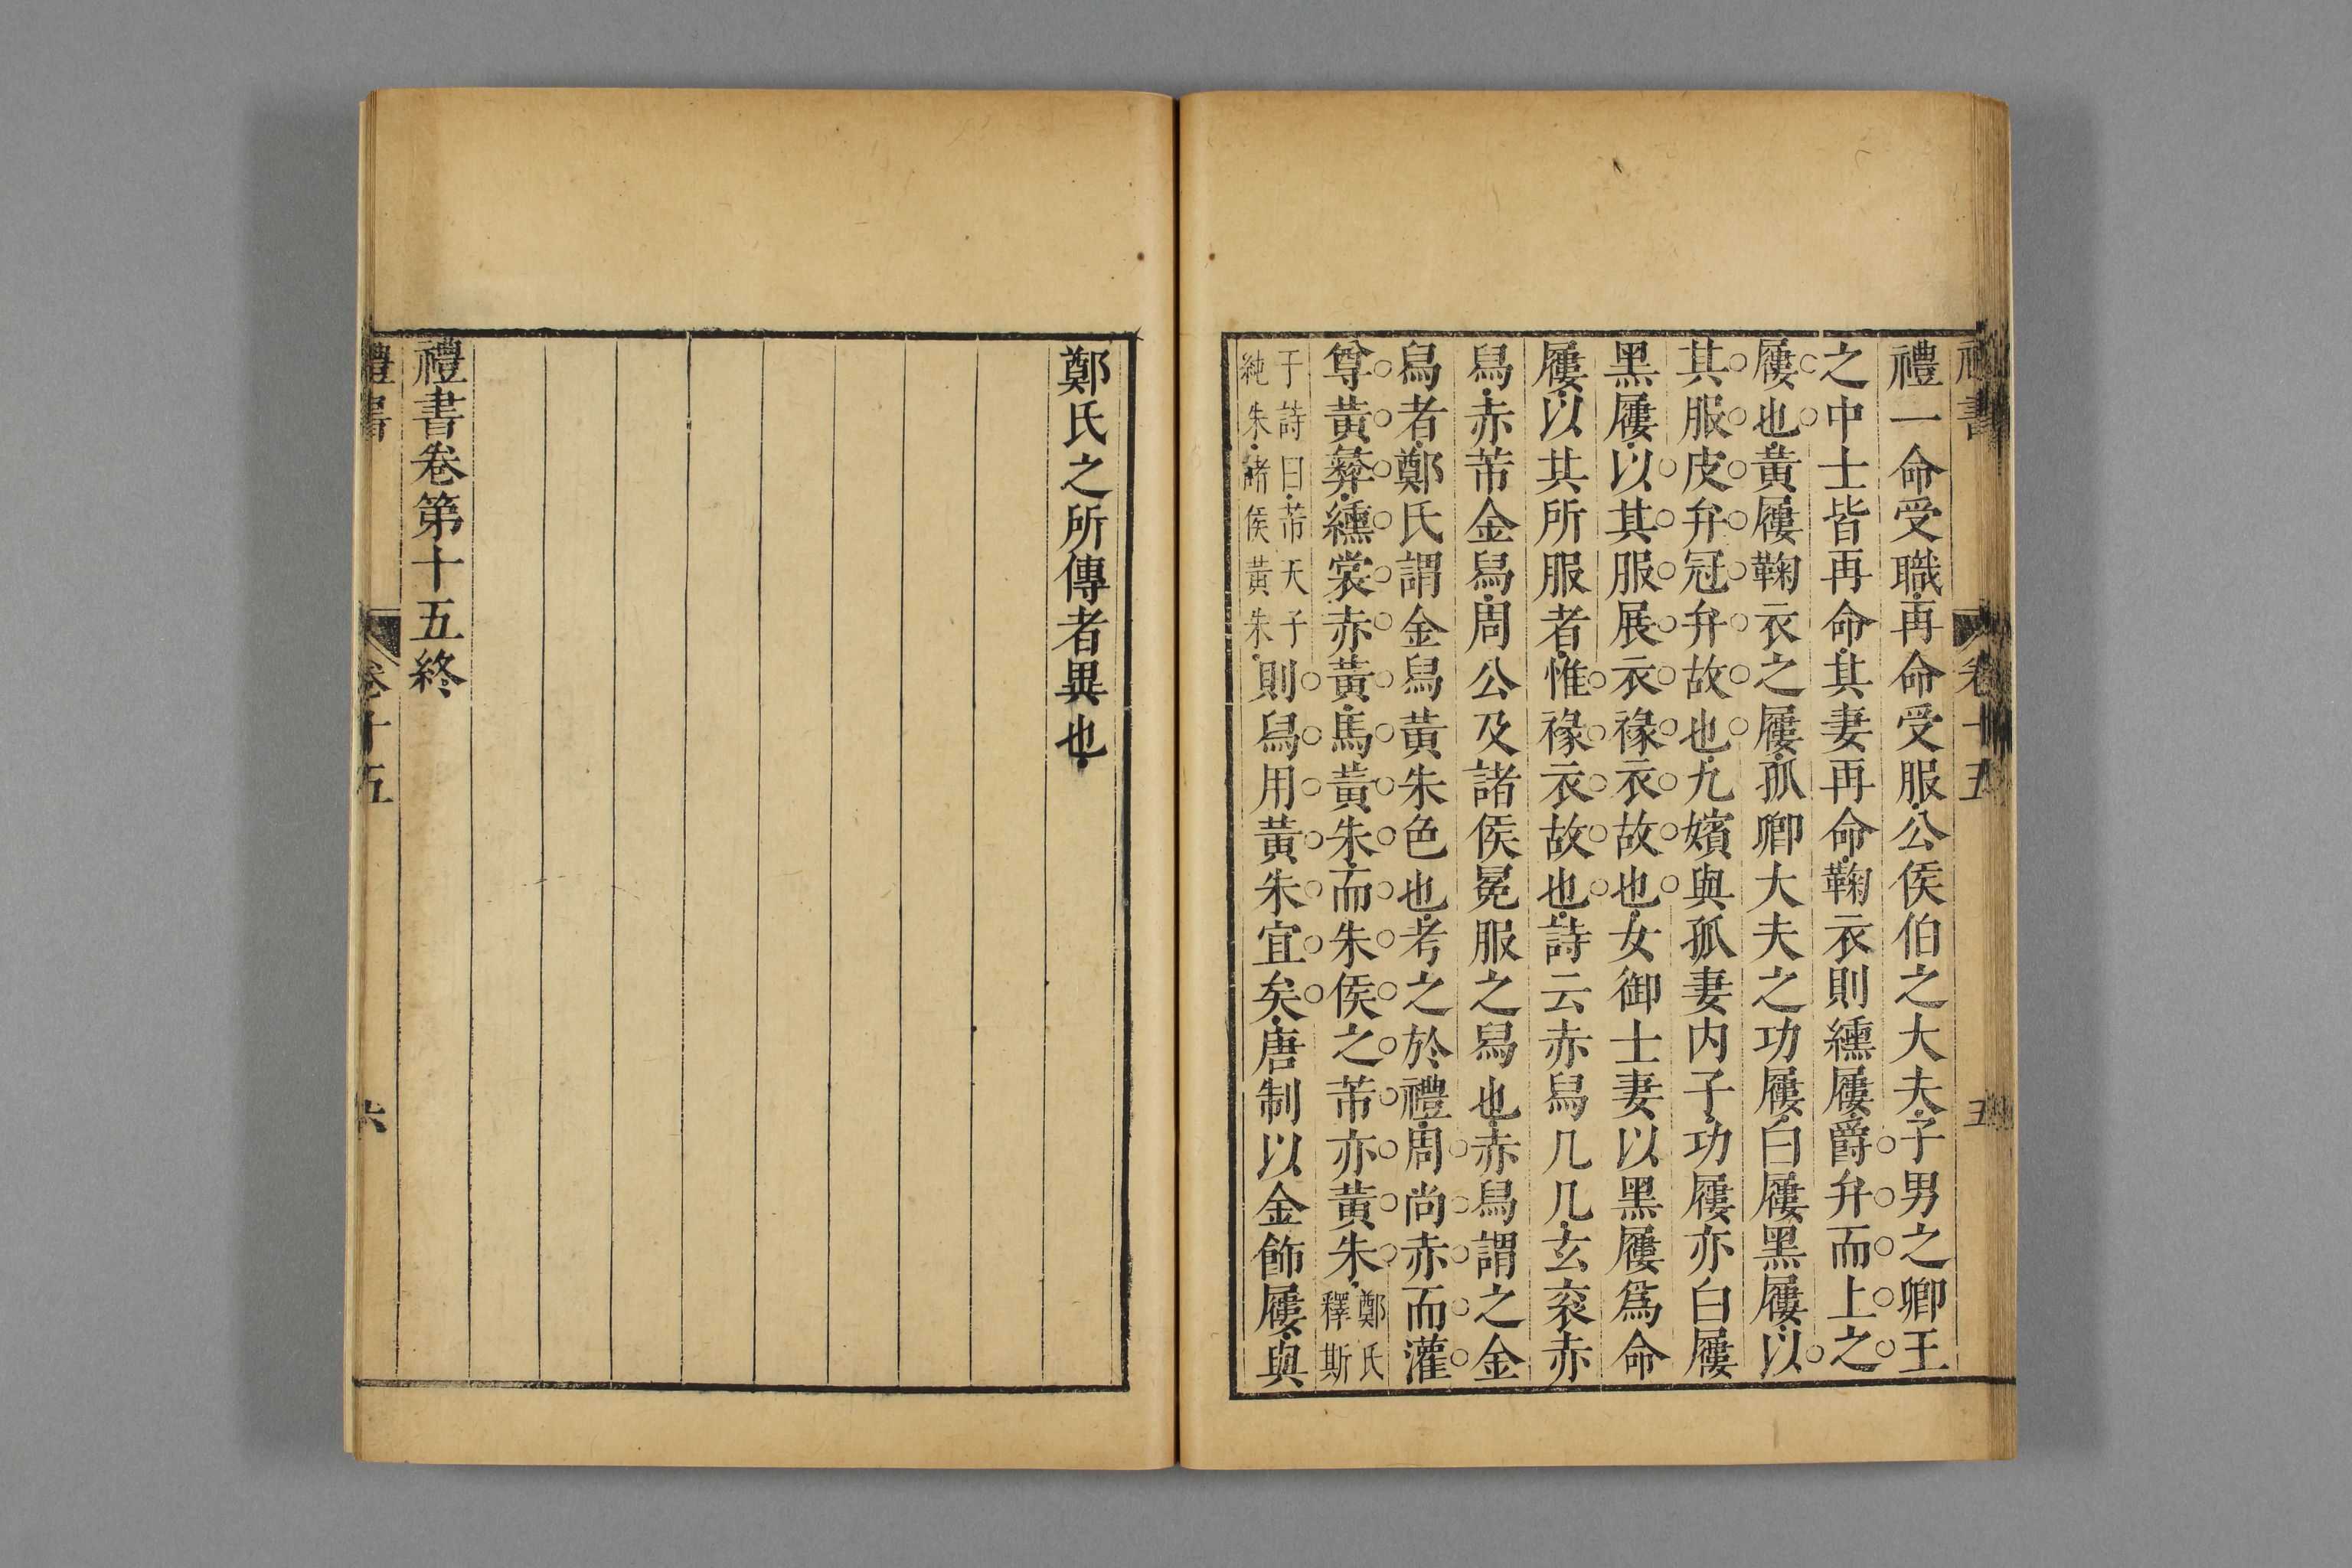 禮書
卷十五
五
禮一命受職再命受服公侯伯之大夫子男之卿王
之中士皆再命其妻再命鞠衣則纁屨爵弁而上之
屨也黃屨鞠衣之屨孤卿大夫之功屨白屨黑屨以
其服皮弁冠弁故也九嬪與孤妻内子功屨亦白屨
黑屨以其服展衣褖衣故也女御士妻以黑屨爲命
屨以其所服者惟褖衣故也詩云赤舄几几玄衮赤
舄赤芾金舄周公及諸侯冕服之舄也赤舄謂之金
舄者鄭氏謂金舄黃朱色也考之於禮周尚赤而灌
尊黃彝纁裳赤黃馬黃朱而朱侯之芾亦黃朱鄭氏釋斯
于詩曰芾天子純朱諸侯黃朱則舄用黃朱宜矣唐制以金飾屨與
鄭氏之所傳者異也
禮書卷第十五終
禮書
卷十五
六